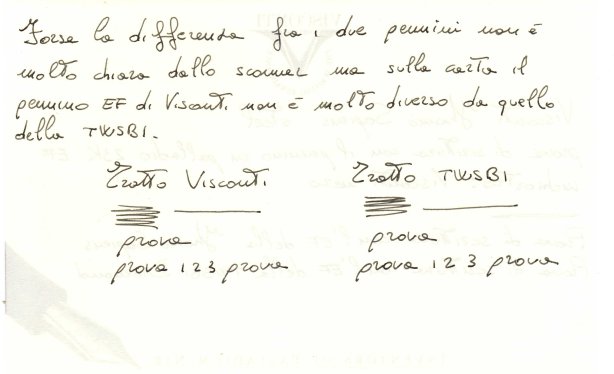 Forse la differenza fra i due pennini non è
molto chiara dallo scanner ma sulla carta il
pennino EF di Visconti non è molto diverso da quello
della TWSBI.
Tratto Visconti Tratto TWSBI
prova prova
prova 1 2 3 prova prova 1 2 3 prova